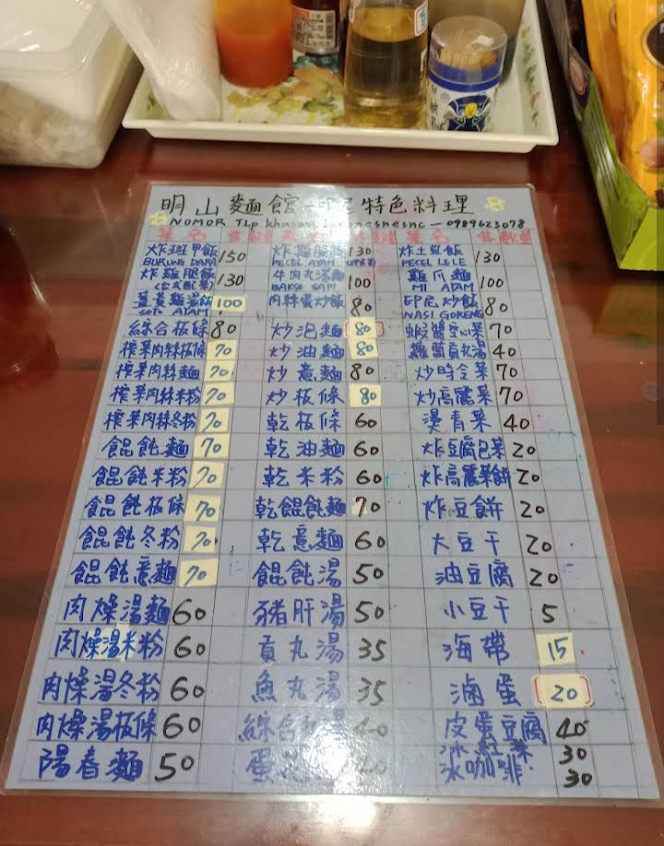 明山麵館 印尼特色料理
NOMOR TLp 0989623078
炸斑甲飯 150 炸雞腿飯 130 炸土虱飯 130
BURUNG DARA PECEL AYAM PECEL LELE
炸雞腿飯 130 牛肉丸湯麵 100 雞爪麵 100
(台式配菜) BAKSO SAPI MI AYAM
薑黃雞湯飯 100 肉絲蛋炒飯 80 印尼炒飯 80
SOTO AYAM NASI GORENG
綜合板條 80 炒泡麵 80 蝦醬空心菜 70
榨菜肉絲板條 70 炒油麵 80 貢丸湯 40
榨菜肉絲麵 70 炒意麵 80 炒時令菜 70
榨菜肉絲米粉 70 炒板條 80 炒高麗菜 70
榨菜肉絲冬粉 70 乾板條 60 燙青菜 40
餛飩麵 70 乾油麵 60 炸豆腐包菜 20
餛飩米粉 70 乾米粉 60 炸高麗菜餅 20
餛飩板條 70 乾餛飩麵 70 炸豆餅 20
餛飩冬粉 70 乾意麵 60 大豆干 20
餛飩意麵 70 餛飩湯 50 油豆腐 20
肉燥湯麵 60 豬肝湯 50 小豆干 5
肉燥湯米粉 60 貢丸湯 35 海帶 15
肉燥湯冬粉 60 魚丸湯 35 滷蛋 20
肉燥湯板條 60 綜合湯 40 皮蛋豆腐 40
陽春麵 50 蛋 冰紅茶 30
冰咖啡 30